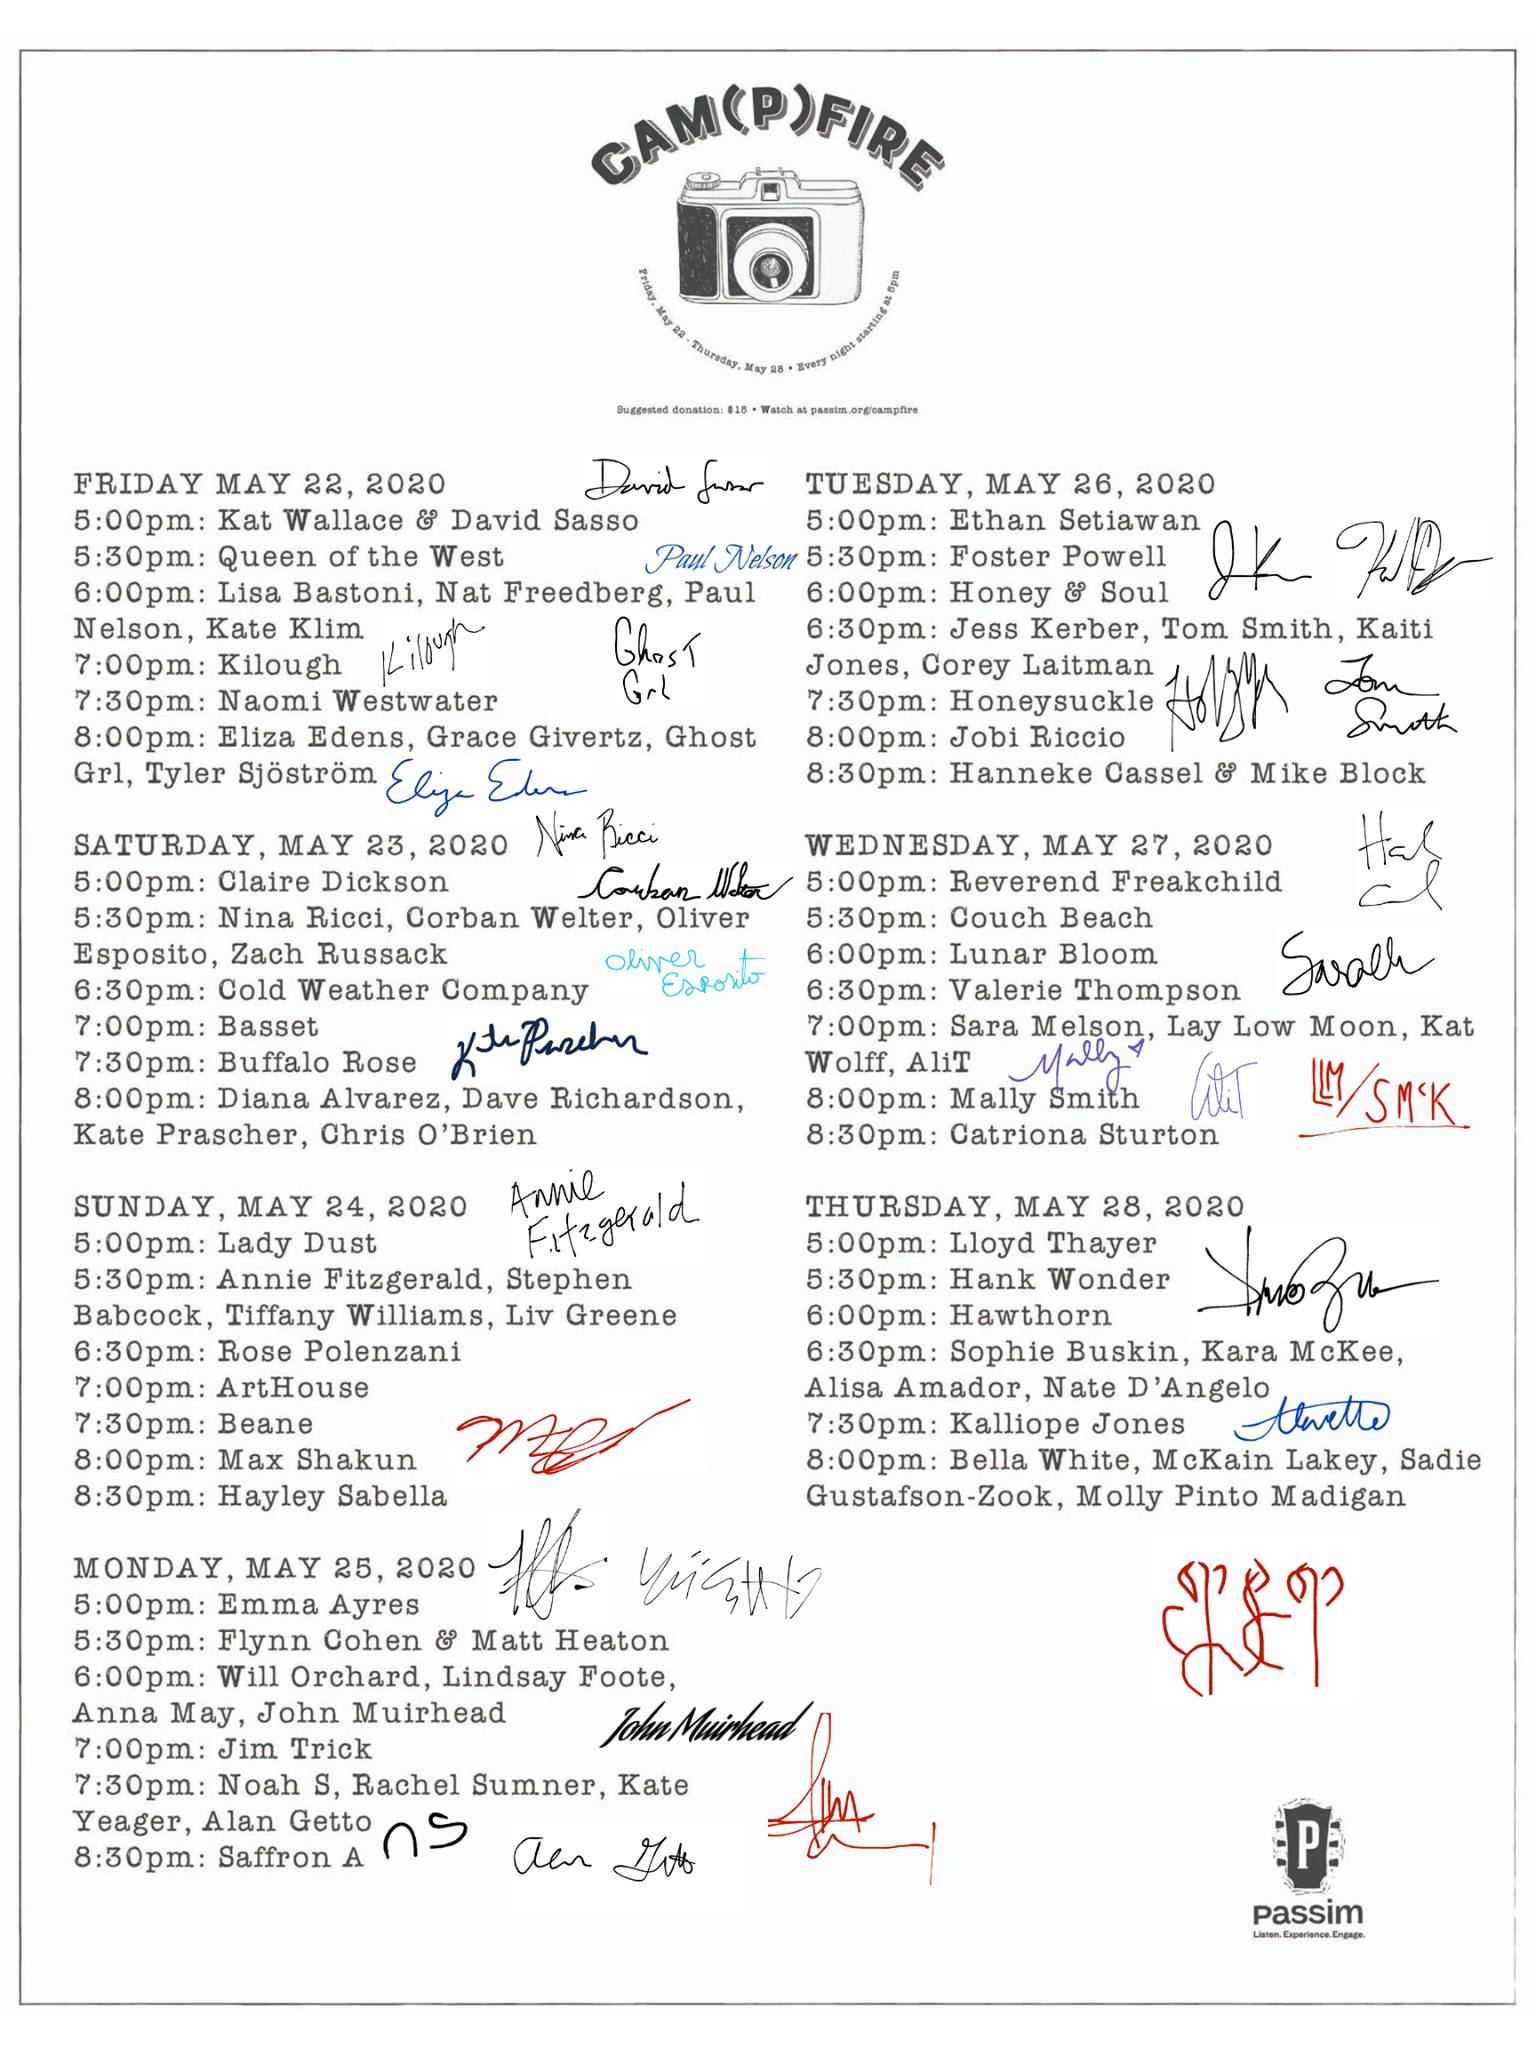 CAM(P)FIRE
Friday, May 22 - Thursday, May 28 • Every night starting at 5pm
Suggested donation: $15 • Watch at passim.org/campfire
FRIDAY MAY 22, 2020
David
5:00pm: Kat Wallace & David Sasso
5:30pm: Queen of the West
Paul Nelson
6:00pm: Lisa Bastoni, Nat Freedberg, Paul
Nelson, Kate Klim
7:00pm: Kilough
Kilough
Ghost
Grl
7:30pm: Naomi Westwater
8:00pm: Eliza Edens, Grace Givertz, Ghost
Grl, Tyler Sjöström
Eliza Edens
SATURDAY, MAY 23, 2020
Nina Ricci
5:00pm: Claire Dickson
Corban Welter
5:30pm: Nina Ricci, Corban Welter, Oliver
Esposito, Zach Russack
Oliver
Esposito
6:30pm: Cold Weather Company
7:00pm: Basset
7:30pm: Buffalo Rose
Kate Prascher
8:00pm: Diana Alvarez, Dave Richardson,
Kate Prascher, Chris O'Brien
SUNDAY, MAY 24, 2020
Annie
Fitzgerald
5:00pm: Lady Dust
5:30pm: Annie Fitzgerald, Stephen
Babcock, Tiffany Williams, Liv Greene
6:30pm: Rose Polenzani
7:00pm: ArtHouse
7:30pm: Beane
8:00pm: Max Shakun
8:30pm: Hayley Sabella
MONDAY, MAY 25, 2020
5:00pm: Emma Ayres
5:30pm: Flynn Cohen & Matt Heaton
6:00pm: Will Orchard, Lindsay Foote,
Anna May, John Muirhead
John Muirhead
7:00pm: Jim Trick
7:30pm: Noah S, Rachel Sumner, Kate
Yeager, Alan Getto
8:30pm: Saffron A
ns
Alan Getto
TUESDAY, MAY 26, 2020
5:00pm: Ethan Setiawan
5:30pm: Foster Powell
6:00pm: Honey & Soul
6:30pm: Jess Kerber, Tom Smith, Kaiti
Jones, Corey Laitman
Tom
Smith
7:30pm: Honeysuckle
8:00pm: Jobi Riccio
8:30pm: Hanneke Cassel & Mike Block
WEDNESDAY, MAY 27, 2020
5:00pm: Reverend Freakchild
5:30pm: Couch Beach
6:00pm: Lunar Bloom
6:30pm: Valerie Thompson
7:00pm: Sara Melson, Lay Low Moon, Kat
Wolff, AliT
Mally
AliT
LLM/SMcK
8:00pm: Mally Smith
8:30pm: Catriona Sturton
THURSDAY, MAY 28, 2020
5:00pm: Lloyd Thayer
5:30pm: Hank Wonder
6:00pm: Hawthorn
6:30pm: Sophie Buskin, Kara McKee,
Alisa Amador, Nate D'Angelo
7:30pm: Kalliope Jones
8:00pm: Bella White, McKain Lakey, Sadie
Gustafson-Zook, Molly Pinto Madigan
P
passim
Listen. Experience. Engage.